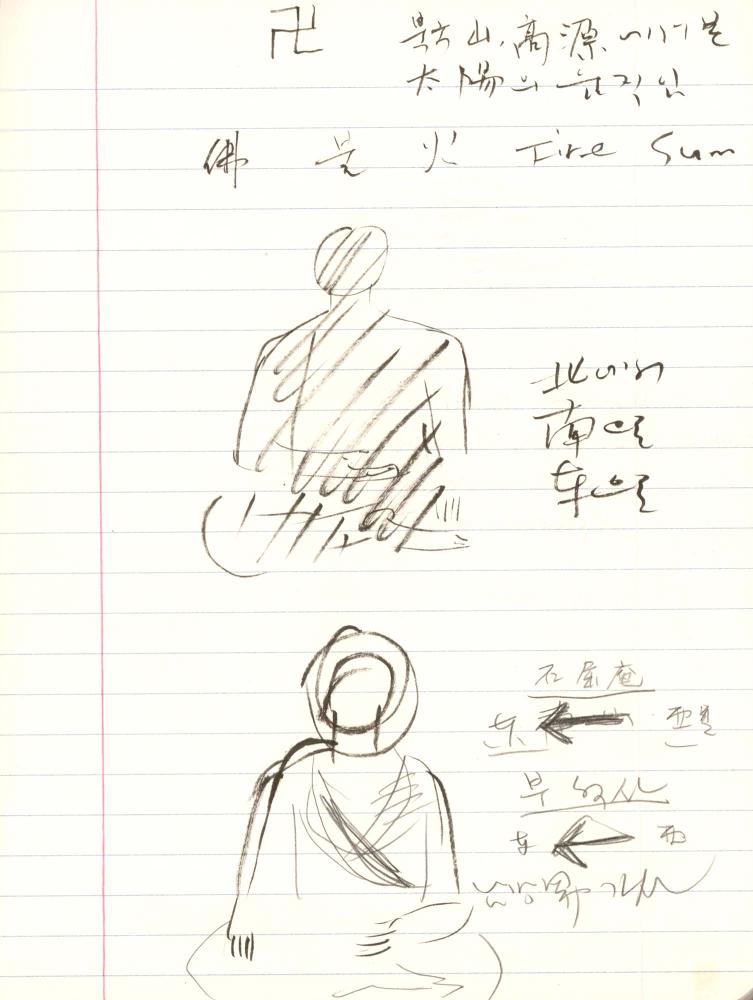 卍
山, 高源에서 본
太陽의 움직임
佛 불 火 Fire Sun
北에서
南으로
东으로
石窟庵
东 西
부석사
东 西